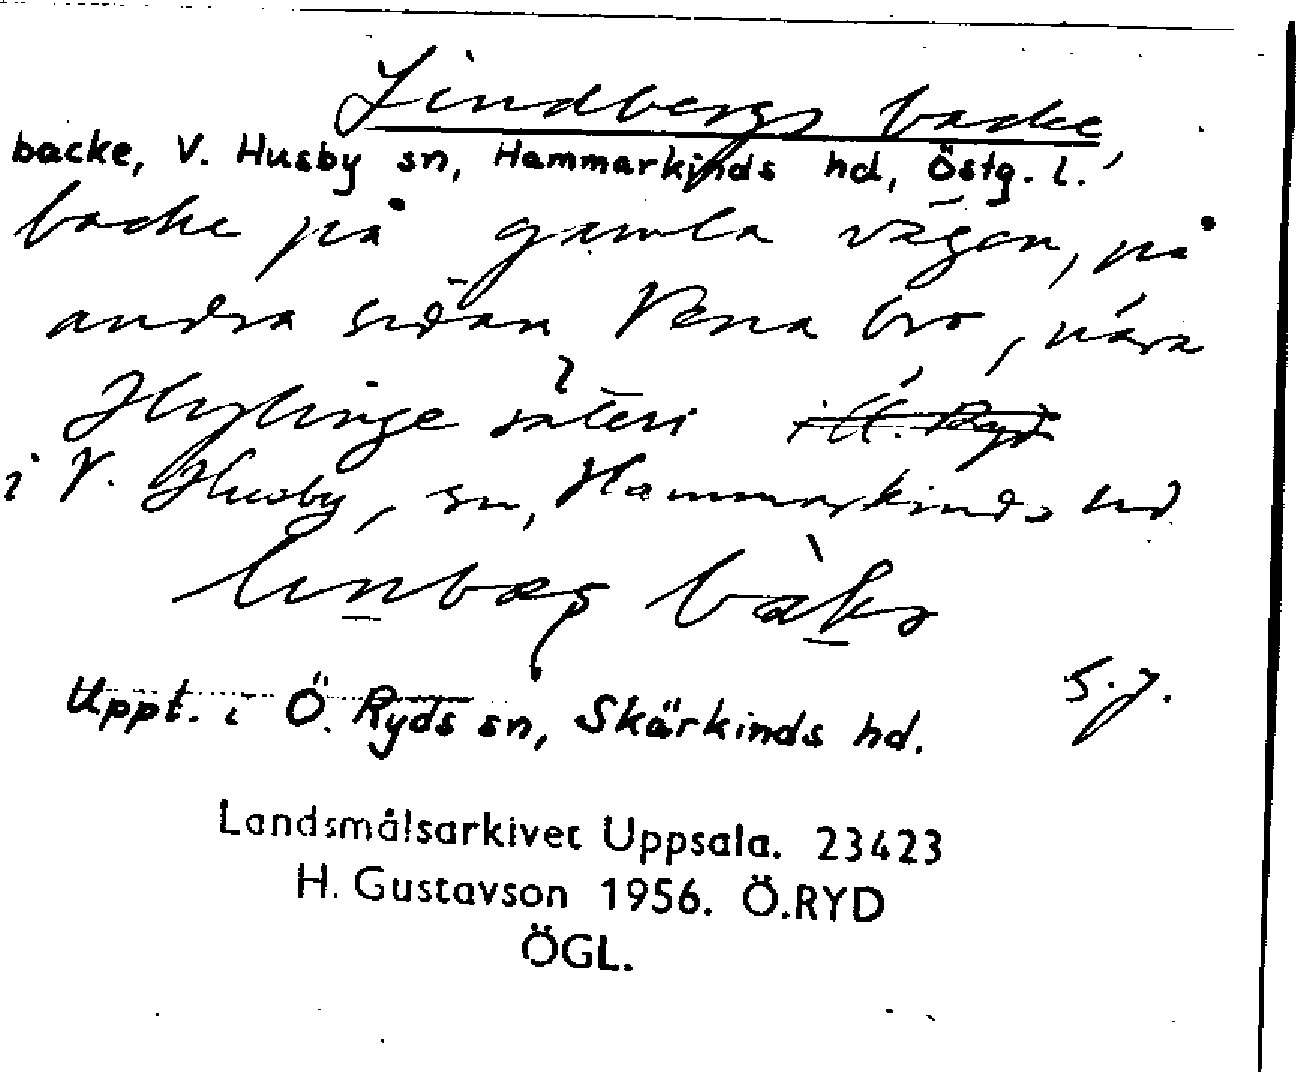 Lindbergs backe,
backe, V. Husby sn, Hammarkinds hd, Östg. l.
backe på gamla vägen, på
andra sidan Vena bro, nära
Hylinge säteri i Ö. Ryd
i V. Husby, sn, Hammarkinds hd
linbærg bàkα
S.J.
Uppt. i Ö. Ryds sn, Skärkinds hd.
Landsmålsarkivet Uppsala. 23423
H. Gustavson 1956. Ö.RYD
ÖGL.